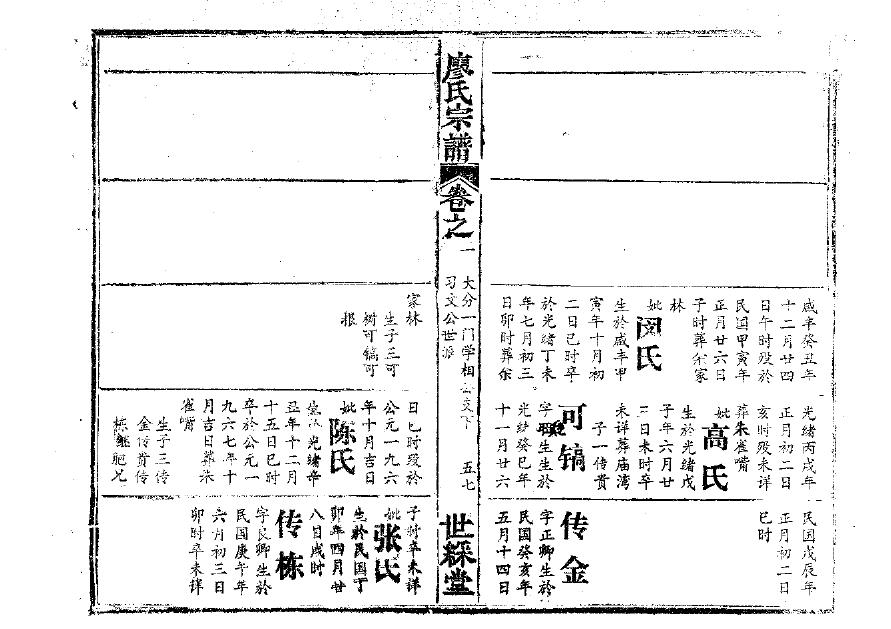 咸丰癸丑年
十二月廿四
日午时殁於
民国甲寅年
正月廿六日
子时葬余家
林
妣闵氏
生於咸丰甲
寅年十月初
二日巳时卒
於光绪丁未
年七月初三
日卯时葬余
家林
生子三可
树可镐可
根
光绪丙戌年
正月初二日
亥时殁未详
葬朱雀嘴
妣高氏
生於光绪戊
子年六月廿
三日未时卒
未详葬庙湾
子一传贵
可镐
字聚生生於
光绪癸巳年
十一月廿六
日巳时殁於
公元一九六
年十月吉日
妣陈氏
生於光绪辛
丑年十二月
十五日巳时
卒於公元一
九六七年十
月吉日葬朱
雀嘴
生子三传
金传贵传
栋继胞兄
民国戊辰年
正月初二日
巳时
传金
字正卿生於
民国癸亥年
五月十四日
子时卒未详
妣张氏
生於民国丁
卯年四月廿
八日戌时
传栋
字良卿生於
民国庚午年
六月初三日
卯时卒未详
廖氏宗譜
卷之一
大分一门学相公文下
习文公世派
五七
世綵堂